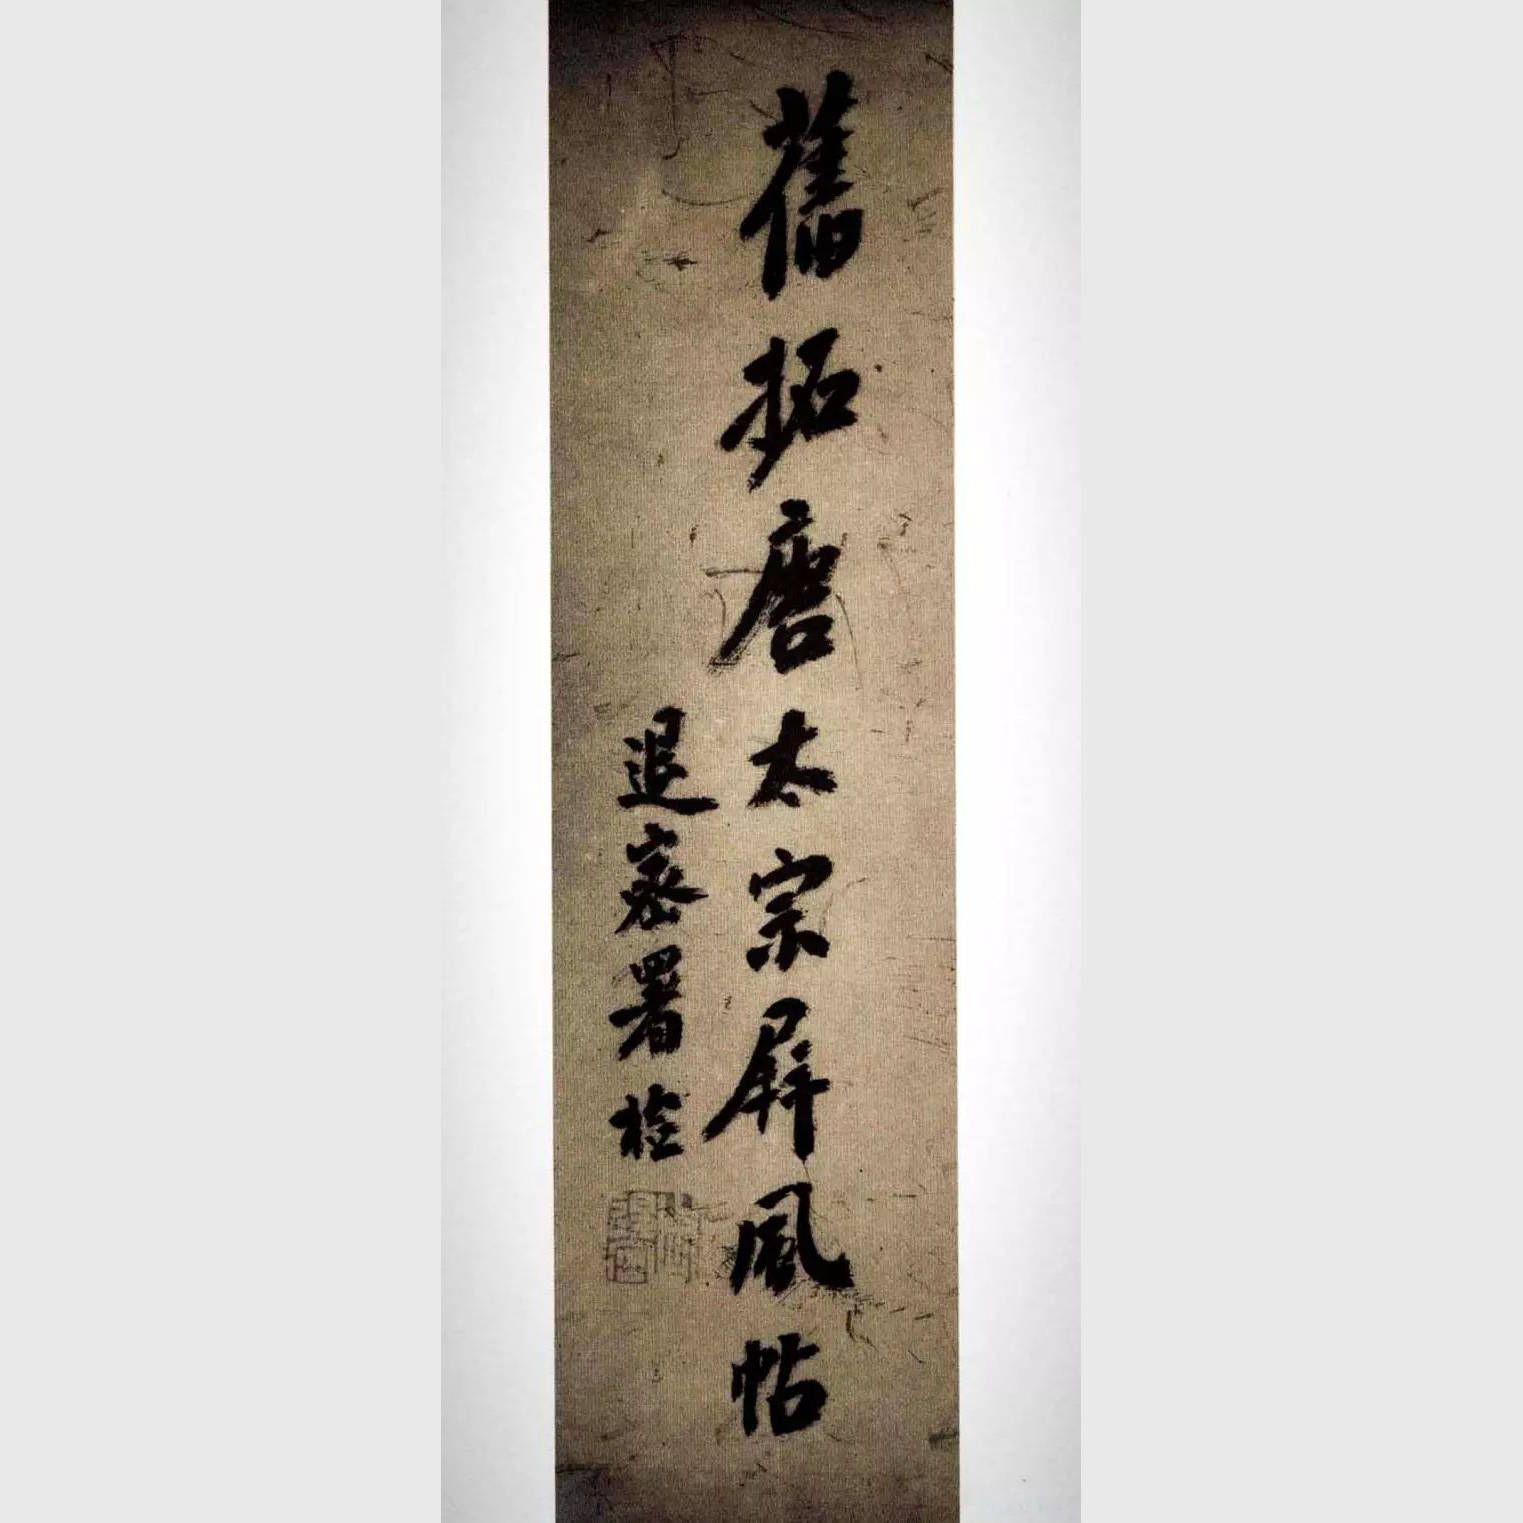 舊拓唐太宗屏風帖
退密署檢